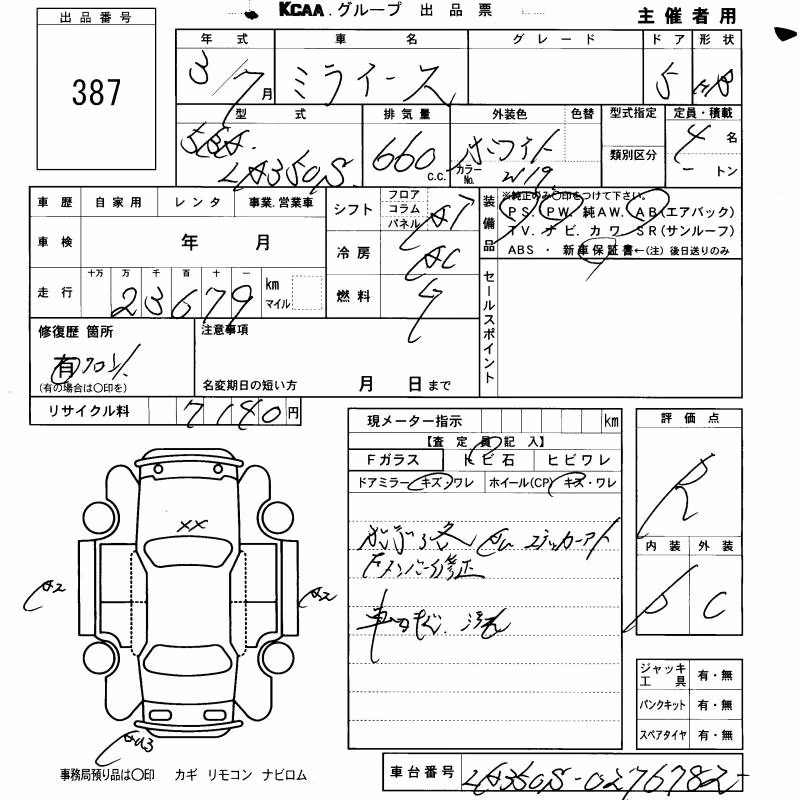 KCAA.グループ 出品票
主催者用
出品番号
387
年式 車名 グレード ドア 形状
3/7月 ミライース 5 HB
型式 排気量 外装色 色替 型式指定 定員・積載
5BA-
LA350S 660 c.c. ホワイト カラーNo. W19 類別区分 4名
ートン
車歴 自家用 レンタ 事業.営業車
車検 年 月
十万 万 千 百 十 一
走行 23679 km マイル
シフト フロア コラム パネル AT
冷房 AC
燃料 G
装備品
※純正のみ〇印をつけて下さい。
PS. PW. 純AW. AB(エアバック)
TV. ナビ. カワ. SR(サンルーフ)
ABS ・ 新車保証書←(注) 後日送りのみ
セールスポイント
修復歴 箇所
有 フロント
(有の場合は〇印を)
注意事項
名変期日の短い方 月 日まで
リサイクル料 7180円
現メーター指示 km
【査定員記入】
Fガラス トビ石 ヒビワレ
ドアミラー キズ・ワレ ホイール(CP) キズ・ワレ
Fメンバー修正
評価点
R
内装 外装
C
××
A2
A2
ジャッキ工具 有・無
パンクキット 有・無
スペアタイヤ 有・無
事務局預り品は〇印 カギ リモコン ナビロム
車台番号 LA350S-0276782